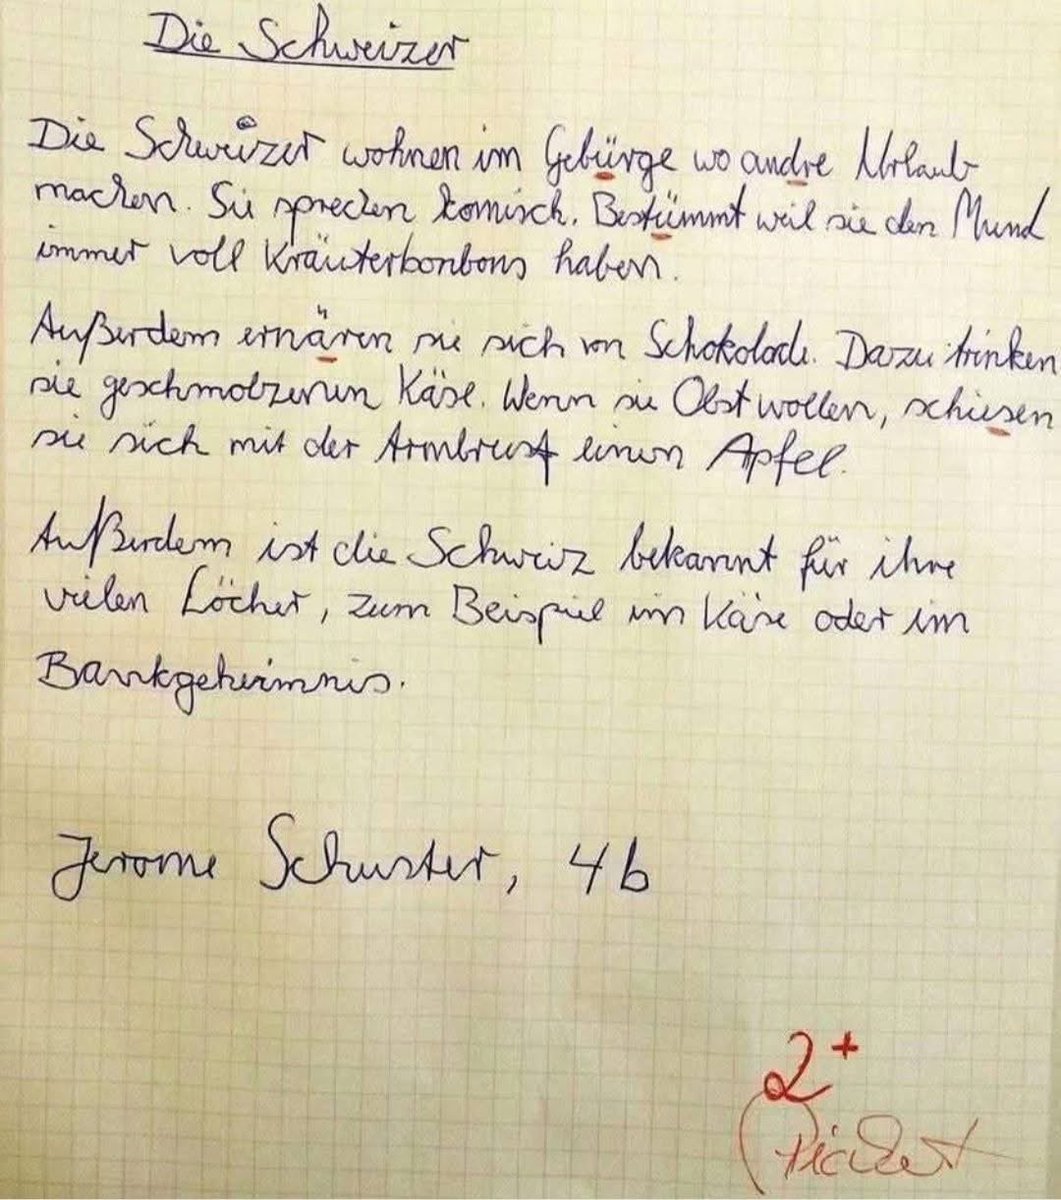 Die Schweizer
Die Schweizer wohnen im Gebürge wo andre Urlaub
machen. Sie sprechen komisch. Bestümmt weil sie den Mund
immer voll Kräuterbonbons haben.
Außerdem ernären sie sich von Schokolade. Dazu trinken
sie geschmolzenen Käse. Wenn sie Obst wollen, schiesen
sie sich mit der Armbrust einen Apfel.
Außerdem ist die Schweiz bekannt für ihre
vielen Löcher, zum Beispiel im Käse oder im
Bankgeheimnis.
Jerome Schuster, 4b
2+